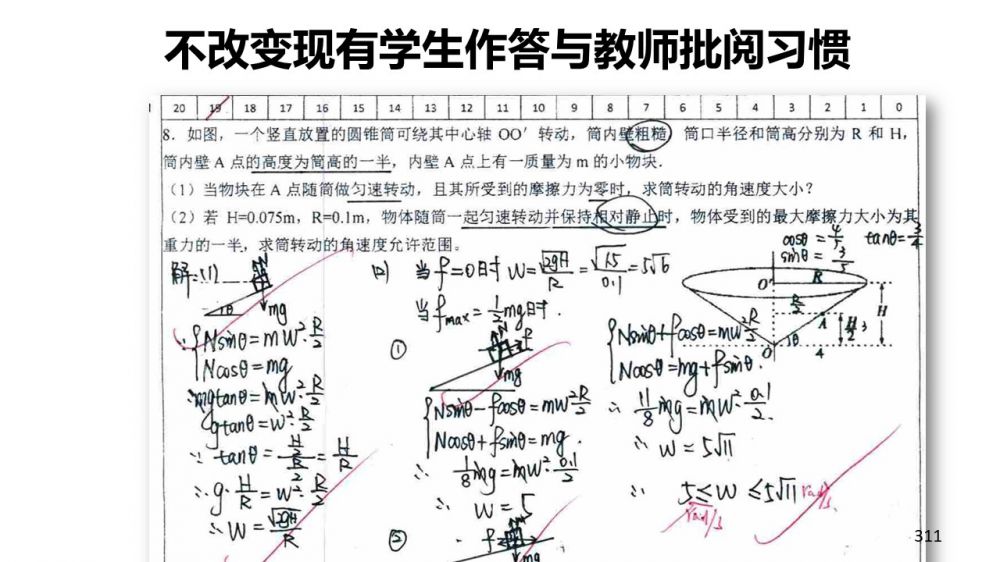 不改变现有学生作答与教师批阅习惯
20 19 18 17 16 15 14 13 12 11 10 9 8 7 6 5 4 3 2 1 0
8. 如图，一个竖直放置的圆锥筒可绕其中心轴 OO′ 转动，筒内壁粗糙，筒口半径和筒高分别为 R 和 H，
筒内壁 A 点的高度为筒高的一半，内壁 A 点上有一质量为 m 的小物块．
（1）当物块在 A 点随筒做匀速转动，且其所受到的摩擦力为零时，求筒转动的角速度大小？
（2）若 H=0.075m，R=0.1m，物体随筒一起匀速转动并保持相对静止时，物体受到的最大摩擦力大小为其
重力的一半，求筒转动的角速度允许范围。
cosθ = 4/5 tanθ = 3/4
sinθ = 3/5
O′ R
R/2
A H/2 3 H
O θ 4
解：(1)
N
θ mg
Nsinθ = mω²·R/2
Ncosθ = mg
∴ mgtanθ = mω²·R/2
gtanθ = ω²·R/2
∵ tanθ = (H/2)/(R/2) = H/R
∴ g·H/R = ω²·R/2
∴ ω = √2gH/R
(2) 当 f=0时 ω = √2gH/R = √1.5/0.1 = 5√6
当 fmax = 1/2 mg时.
① N f
mg
Nsinθ - fcosθ = mω²R/2
Ncosθ + fsinθ = mg.
∴ 1/8 mg = mω²·0.1/2
∴ ω = 5
② f N
mg
Nsinθ + fcosθ = mω²R/2
Ncosθ = mg + fsinθ.
∴ 11/8 mg = mω²·0.1/2.
∴ ω = 5√11
∴ 5 ≤ ω ≤ 5√11 rad/s
rad/s
311